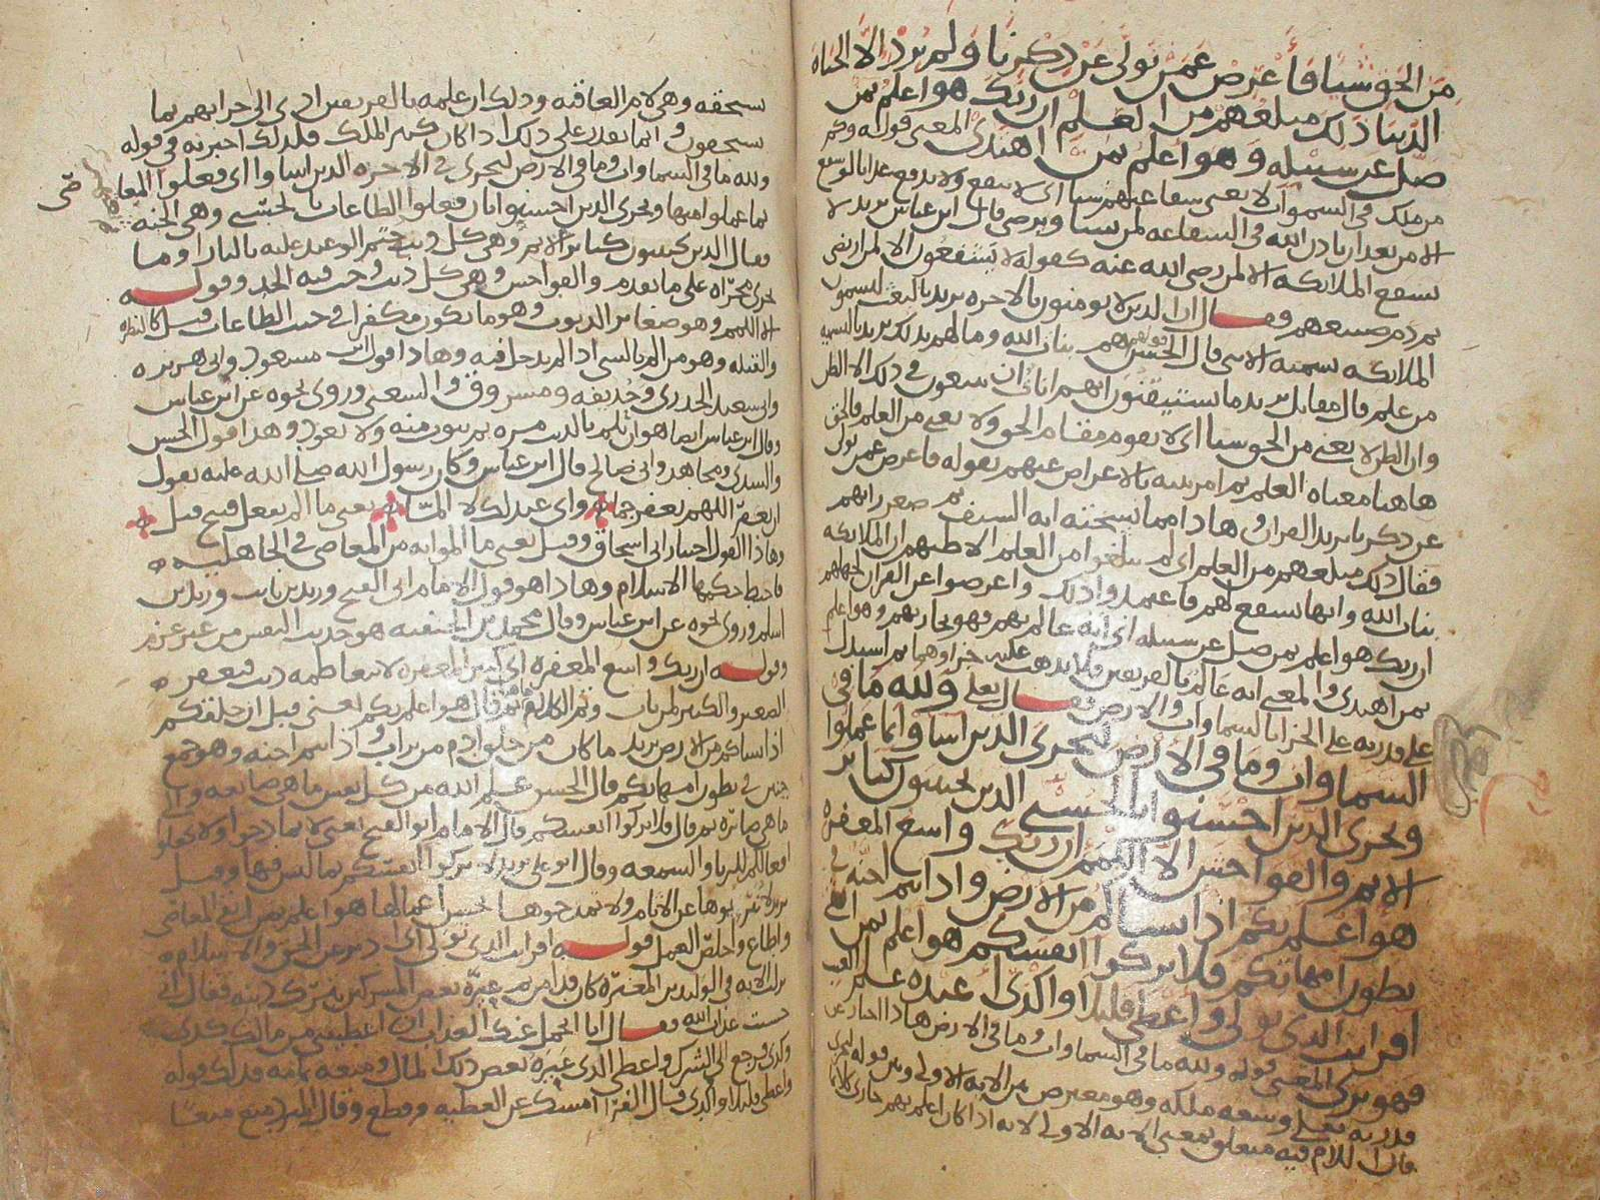 من الحق شيا فاعرض عمن تولى عن ذكرنا ولم يرد الا الحياه
الدنيا ذلك مبلغهم من العلم ان ربك هو اعلم بمن
ضل عن سبيله وهو اعلم بمن اهتدى المعنى قوله وكم
من ملك في السموات لا يعنى شفاعتهم شيا اى لا ينفع ولا يدفع
الا من بعد ان ياذن الله في الشفاعه لمن يشا ويرضى قال ابن عباس يريد لا
يشفع الملايكه الا لمن رضى الله عنه كقوله لا يشفعون الا لمن ارتضى
ثم ذم صنيعهم وقال ان الذين لا يومنون بالاخره يريد بالبعث ليسمون
الملايكه تسميه الانثى قال الحسن قولهم هم بنات الله وما لهم بذلك يريد بالتسميه
من علم قال مقاتل يريد ما يستيقنون انهم اناث ان يتبعون في ذلك الا الظن
وان الظن لا يغنى من الحق شيا اى لا يقوم مقام الحق ولا يغنى من العلم فالحق
هاهنا معناه العلم ثم امر نبيه بالاعراض عنهم بقوله فاعرض عمن تولى
عن ذكرنا يريد القران وهاذا مما نسخته ايه السيف ثم صغر رايهم
فقال ذلك مبلغهم من العلم اى لم يبلغوا من العلم الا ظنهم ان الملايكه
بنات الله وانها تشفع لهم فاعتمدوا ذلك واعرضوا عن القران
ان ربك هو اعلم بمن ضل عن سبيله اى انه عالم بهم فهو يجازيهم وهو اعلم
بمن اهتدى والمعنى انه عالم بالفريقين فلا يذهب عليه جزاوهما ثم استدل
على قدرته على الجزا بالسماوات والارض فقال تعلى ولله ما في
السماوات وما في الارض ليجزى الذين اساوا بما عملوا
ويجزى الذين احسنوا بالحسنى الذين يجتنبون كباير
الاثم والفواحش الا اللمم ان ربك واسع المغفره
هو اعلم بكم اذ انشاكم من الارض واذ انتم اجنه في
بطون امهاتكم فلا تزكوا انفسكم هو اعلم بمن اتقى
افرايت الذى تولى واعطى قليلا واكدى اعنده علم الغيب
فهو يرى المعنى قوله ولله ما في السماوات وما في الارض هاذا اخبار عن
قدرته تعلى وسعه ملكه وهو معترض بين الايه الاولى وبين قوله ليجزى
قال اللام فيه متعلق بمعنى الايه الاولى لانه اذا كان اعلم بهم جازى كلا بما
يستحقه وهى لام العاقبه وذلك ان علمه بالفريقين ادى الى جزايهم بما
يستحقون وانما يقدر على ذلك اذا كان كثير الملك فلذلك اخبر به في قوله
ولله ما في السماوات وما في الارض ليجزى في الاخره الذين اساوا اى فعلوا المعاصى
بما عملوا فيها ويجزى الذين احسنوا بان فعلوا الطاعات بالحسنى وهى الجنه
وقال الذين يجتنبون كباير الاثم وهى كل ذنب ختم الوعيد عليه بالنار او ما
يجرى مجراه على ما تقدم والفواحش وهى كل ذنب وجب فيه الحد وقوله
الا اللمم وهو صغاير الذنوب وهو ما يكون مكفرا في جنب الطاعات قيل كالنظره
والقبله وهو من الم بالشى اذا لم يدخل فيه وهاذا قول ابن مسعود وابى هريره
وابى سعيد الخدرى وحذيفه ومسروق والشعبى وروى نحوه عن ابن عباس
وقال ابن عباس ايضا هو ان تلم بالذنب مره ثم يتوب منه ولا يعود وهذا قول الحسن
والسدى ومجاهد وابى صالح قال ابن عباس وكان رسول الله صلى الله عليه يقول
ان تغفر اللهم تغفر جما واى عبد لك لا الما يعنى ما الم بفعل قبيح قيل
وهاذا القول اختيار ابى اسحاق وقيل يعنى ما الموا به من المعاصى في الجاهليه
فاحبط حكمها الاسلام وهاذا هو قول الامام ابى الفتح وزيد بن ثابت وزيد بن
اسلم وروى نحوه عن ابن عباس وقال محمد بن الحنفيه هو حديث النفس من غير عزم
وقوله ان ربك واسع المغفره اى كثير المغفره لا يتعاظمه ذنب يغفر
الصغير والكبير لمن تاب وتم الكلام ثم قال هو اعلم بكم يعنى قبل ان خلقكم
اذ انشاكم من الارض يريد ما كان من خلق ادم من تراب واذ انتم اجنه وهو جمع
جنين في بطون امهاتكم قال الحسن علم الله من كل نفس ما هى صانعه والى
ما هى صايره ثم قال فلا تزكوا انفسكم قال الامام ابو الفتح يعنى لا تمادحوا ولا تجعلوا
افعالكم للريا والسمعه وقال ابو على يريد لا تزكوا انفسكم بما ليس فيها وقيل
يريد لا تبروها عن الاثام ولا تمدحوها بحسن اعمالها هو اعلم بمن اتقى المعاصى
واطاع واخلص العمل قوله افرايت الذى تولى اى ادبر عن الحق والاسلام
نزلت الايه في الوليد بن المغيره كان قد امن ثم عيره بعض المشركين بتركه دينه فقال انى
خشيت عذاب الله فقال انا اتحمل عنك العذاب ان اعطيتنى من مالك كذى
وكذى فرجع الى الشرك واعطى الذى عيره بعض ذلك المال ومنعه تمامه فذلك قوله
واعطى قليلا واكدى قال الفرا امسك عن العطيه وقطع وقال المبرد منع منعا